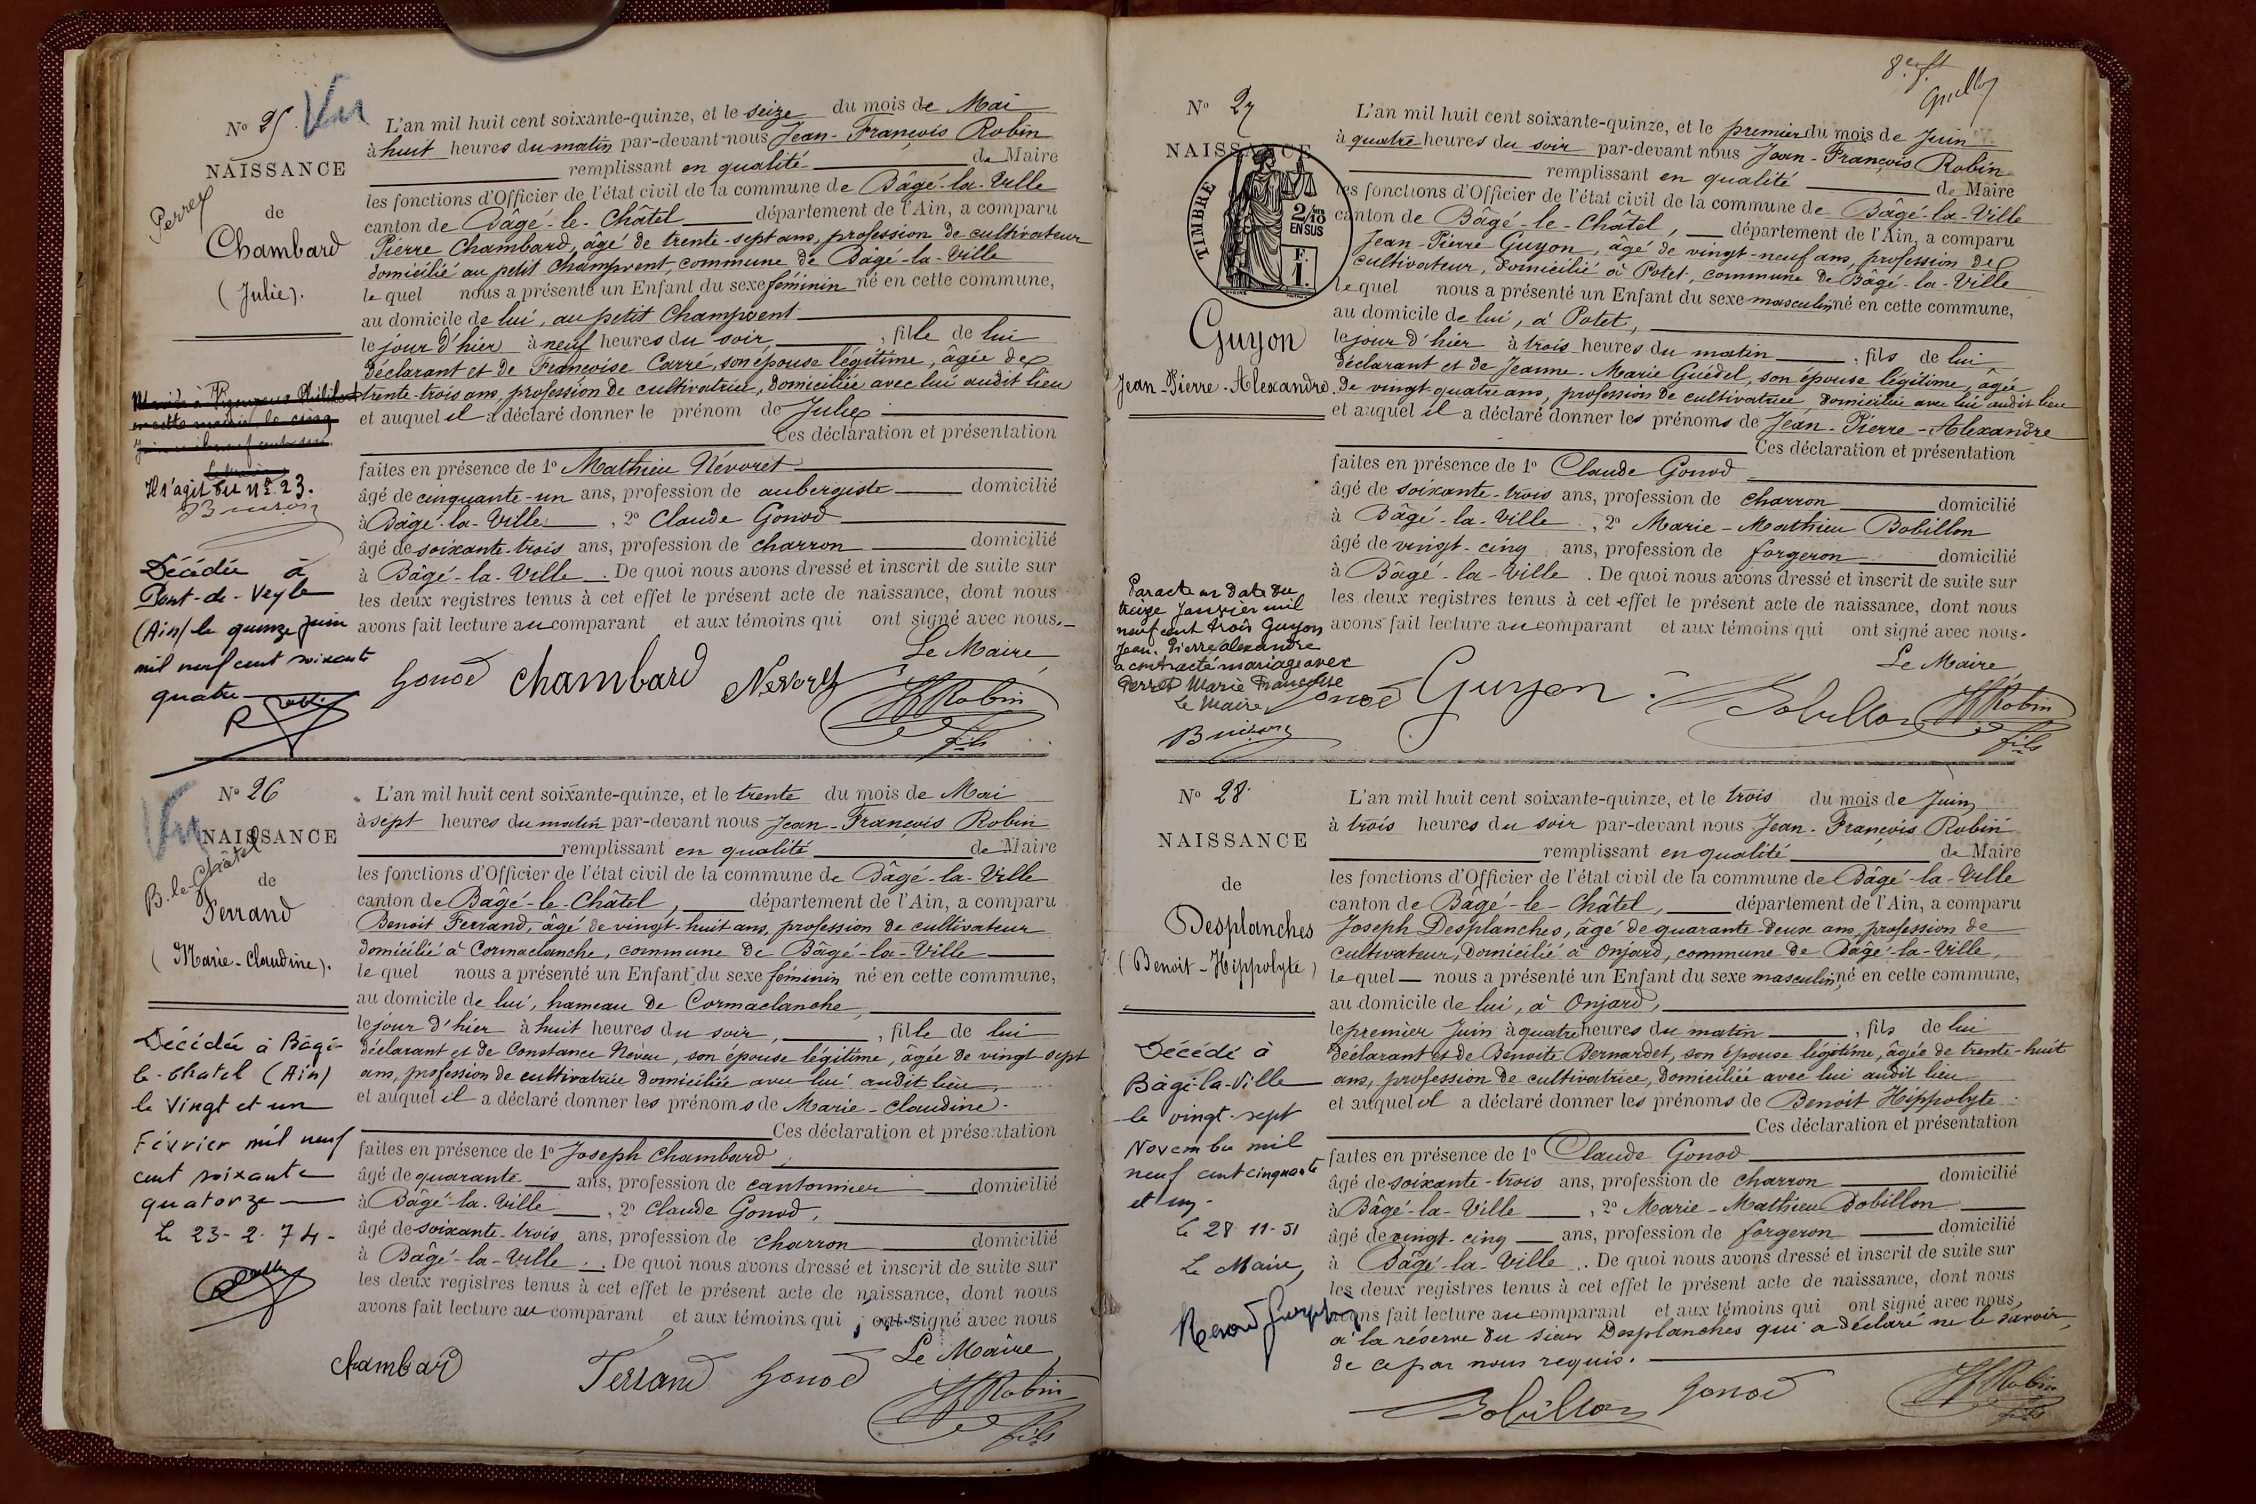 N° 25
Vu
NAISSANCE
Perrex
de
Chambard
(Julie).
L'an mil huit cent soixante-quinze, et le seize du mois de Mai
à huit heures du matin par-devant nous Jean-François Robin
remplissant en qualité de Maire
les fonctions d'Officier de l'état civil de la commune de Bâgé-la-Ville
canton de Bâgé-le-Châtel département de l'Ain, a comparu
Pierre Chambard, âgé de trente-sept ans, profession de cultivateur
domicilié au petit Champvent, commune de Bâgé-la-Ville
lequel nous a présenté un Enfant du sexe féminin né en cette commune,
au domicile de lui, au petit Champvent
le jour d'hier à neuf heures du soir, fille de lui
déclarant et de Françoise Carré, son épouse légitime, âgée de
trente-trois ans, profession de cultivatrice, domiciliée avec lui audit lieu
et auquel il a déclaré donner le prénom de Julie
Ces déclaration et présentation
faites en présence de 1° Mathieu Névoret
âgé de cinquante-un ans, profession de aubergiste domicilié
à Bâgé-la-Ville, 2° Claude Gonod
âgé de soixante-trois ans, profession de charron domicilié
à Bâgé-la-Ville. De quoi nous avons dressé et inscrit de suite sur
les deux registres tenus à cet effet le présent acte de naissance, dont nous
avons fait lecture au comparant et aux témoins qui ont signé avec nous.
Le Maire,
Gonod Chambard Nevorey JF Robin
fils
Il s'agit du n° 23.
Buiron
Décédée à
Pont-de-Veyle
(Ain) le quinze juin
mil neuf cent soixante
quatre
N° 26
Vu
NAISSANCE
B. le Châtel
de
Ferrand
(Marie-Claudine).
L'an mil huit cent soixante-quinze, et le trente du mois de Mai
à sept heures du matin par-devant nous Jean-François Robin
remplissant en qualité de Maire
les fonctions d'Officier de l'état civil de la commune de Bâgé-la-Ville
canton de Bâgé-le-Châtel, département de l'Ain, a comparu
Benoit Ferrand, âgé de vingt-huit ans, profession de cultivateur
domicilié à Cormaclanche, commune de Bâgé-la-Ville
lequel nous a présenté un Enfant du sexe féminin né en cette commune,
au domicile de lui, hameau de Cormaclanche,
le jour d'hier à huit heures du soir, fille de lui
déclarant et de Constance Néveu, son épouse légitime, âgée de vingt-sept
ans, profession de cultivatrice domiciliée avec lui audit lieu
et auquel il a déclaré donner les prénoms de Marie-Claudine.
Ces déclaration et présentation
faites en présence de 1° Joseph Chambard,
âgé de quarante ans, profession de cantonnier domicilié
à Bâgé-la-Ville, 2° Claude Gonod,
âgé de soixante-trois ans, profession de charron domicilié
à Bâgé-la-Ville. De quoi nous avons dressé et inscrit de suite sur
les deux registres tenus à cet effet le présent acte de naissance, dont nous
avons fait lecture au comparant et aux témoins qui ont signé avec nous
Le Maire
Chambard Ferrand Gonod JF Robin
fils
Décédée à Bâgé-
le-Chatel (Ain)
le vingt et un
Février mil neuf
cent soixante
quatorze
Le 23-2-74-
8e ft
Guillon
N° 27
NAISSANCE
TIMBRE
2/10 EN SUS
F. 1.
Guyon
Jean-Pierre-Alexandre.
L'an mil huit cent soixante-quinze, et le premier du mois de Juin
à quatre heures du soir par-devant nous Jean-François Robin
remplissant en qualité de Maire
les fonctions d'Officier de l'état civil de la commune de Bâgé-la-Ville
canton de Bâgé-le-Châtel, département de l'Ain, a comparu
Jean-Pierre Guyon, âgé de vingt-neuf ans, profession de
cultivateur, domicilié à Potet, commune de Bâgé-la-Ville
lequel nous a présenté un Enfant du sexe masculin né en cette commune,
au domicile de lui, à Potet,
le jour d'hier à trois heures du matin, fils de lui
déclarant et de Jeanne-Marie Guédel, son épouse légitime, âgée
de vingt-quatre ans, profession de cultivatrice, domiciliée avec lui audit lieu
et auquel il a déclaré donner les prénoms de Jean-Pierre-Alexandre
Ces déclaration et présentation
faites en présence de 1° Claude Gonod
âgé de soixante-trois ans, profession de charron domicilié
à Bâgé-la-Ville, 2° Marie-Mathieu Bobillon
âgé de vingt-cinq ans, profession de forgeron domicilié
à Bâgé-la-Ville. De quoi nous avons dressé et inscrit de suite sur
les deux registres tenus à cet effet le présent acte de naissance, dont nous
avons fait lecture au comparant et aux témoins qui ont signé avec nous.
Le Maire
Gonod Guyon Bobillon JF Robin
fils
Par acte en date du
treize Janvier mil
neuf cent trois Guyon
Jean-Pierre Alexandre
a contracté mariage avec
Perret Marie Françoise
Le Maire
Buiron
N° 28
NAISSANCE
de
Desplanches
(Benoit-Hippolyte)
L'an mil huit cent soixante-quinze, et le trois du mois de Juin
à trois heures du soir par-devant nous Jean-François Robin
remplissant en qualité de Maire
les fonctions d'Officier de l'état civil de la commune de Bâgé-la-Ville
canton de Bâgé-le-Châtel, département de l'Ain, a comparu
Joseph Desplanches, âgé de quarante-deux ans, profession de
cultivateur, domicilié à Onjard, commune de Bâgé-la-Ville,
lequel nous a présenté un Enfant du sexe masculin né en cette commune,
au domicile de lui, à Onjard,
le premier Juin à quatre heures du matin, fils de lui
déclarant et de Benoite Bernardet, son épouse légitime, âgée de trente-huit
ans, profession de cultivatrice, domiciliée avec lui audit lieu
et auquel il a déclaré donner les prénoms de Benoit Hippolyte
Ces déclaration et présentation
faites en présence de 1° Claude Gonod
âgé de soixante-trois ans, profession de charron domicilié
à Bâgé-la-Ville, 2° Marie-Mathieu Bobillon
âgé de vingt-cinq ans, profession de forgeron domicilié
à Bâgé-la-Ville. De quoi nous avons dressé et inscrit de suite sur
les deux registres tenus à cet effet le présent acte de naissance, dont nous
avons fait lecture au comparant et aux témoins qui ont signé avec nous,
à la réserve du sieur Desplanches qui a déclaré ne le savoir
de ce par nous requis.
Bobillon Gonod JF Robin
fils
Décédé à
Bâgé-la-Ville
le vingt-sept
Novembre mil
neuf cent cinquante
et un-
Le 28-11-51
Le Maire,